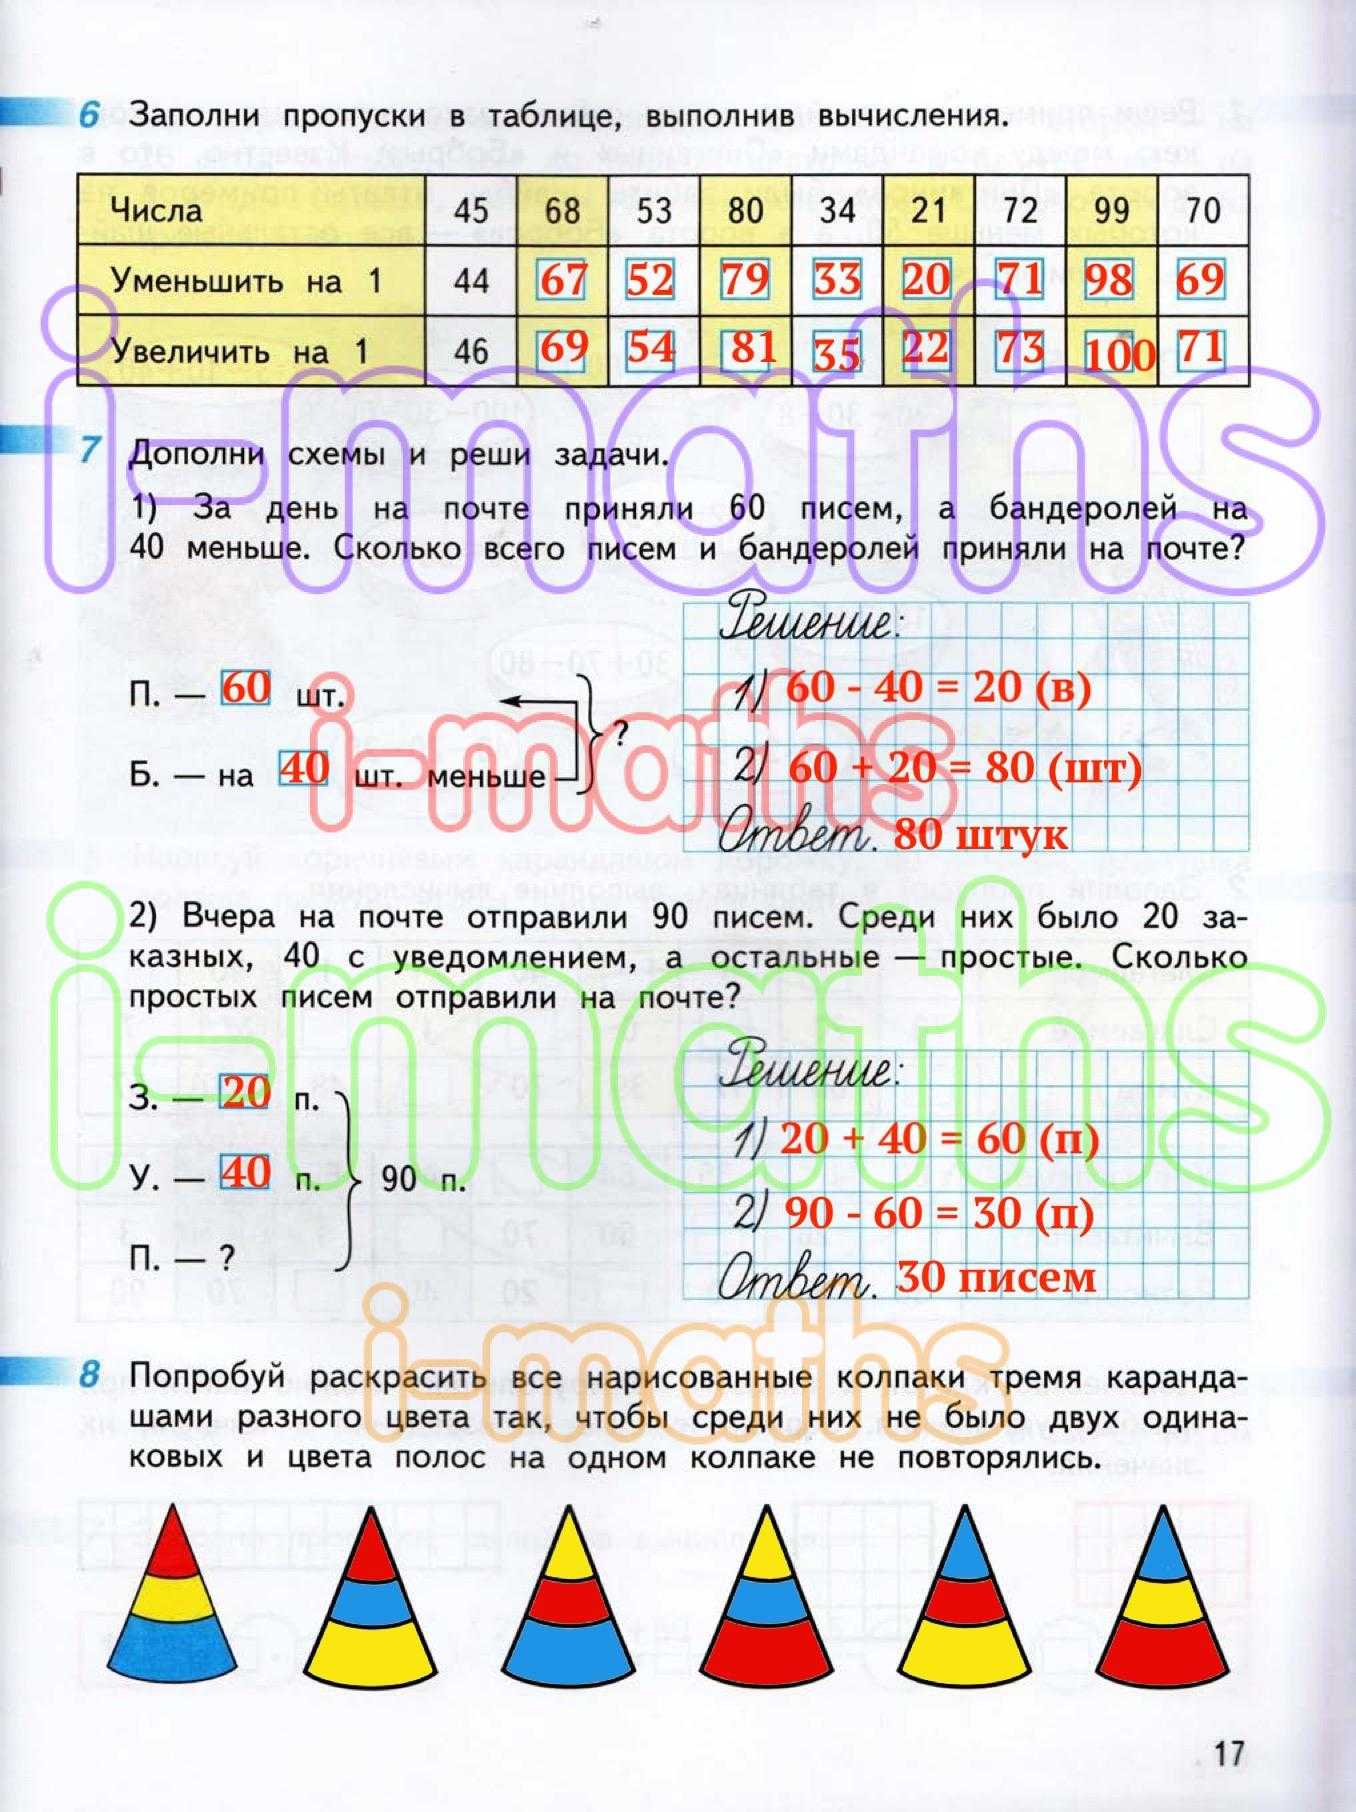 6 Заполни пропуски в таблице, выполнив вычисления.
Числа 45 68 53 80 34 21 72 99 70
Уменьшить на 1 44 67 52 79 33 20 71 98 69
Увеличить на 1 46 69 54 81 35 22 73 100 71
i-maths
7 Дополни схемы и реши задачи.
1) За день на почте приняли 60 писем, а бандеролей на
40 меньше. Сколько всего писем и бандеролей приняли на почте?
Решение:
П. — 60 шт.
1) 60 - 40 = 20 (в)
?
Б. — на 40 шт. меньше
2) 60 + 20 = 80 (шт)
i-maths
Ответ. 80 штук
2) Вчера на почте отправили 90 писем. Среди них было 20 за-
казных, 40 с уведомлением, а остальные — простые. Сколько
простых писем отправили на почте?
i-maths
Решение:
З. — 20 п.
1) 20 + 40 = 60 (п)
У. — 40 п.
90 п.
2) 90 - 60 = 30 (п)
П. — ?
Ответ. 30 писем
i-maths
8 Попробуй раскрасить все нарисованные колпаки тремя каранда-
шами разного цвета так, чтобы среди них не было двух одина-
ковых и цвета полос на одном колпаке не повторялись.
17